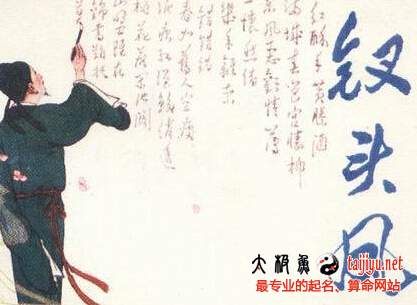 钗头凤
红酥手黄縢酒
满城春色宫墙柳
东风恶欢情薄
一怀愁绪
错错错
春如旧人空瘦
泪痕红浥鲛绡透
桃花落闲池阁
锦书难托
太极鱼 taijiyu.net
最专业的起名、算命网站